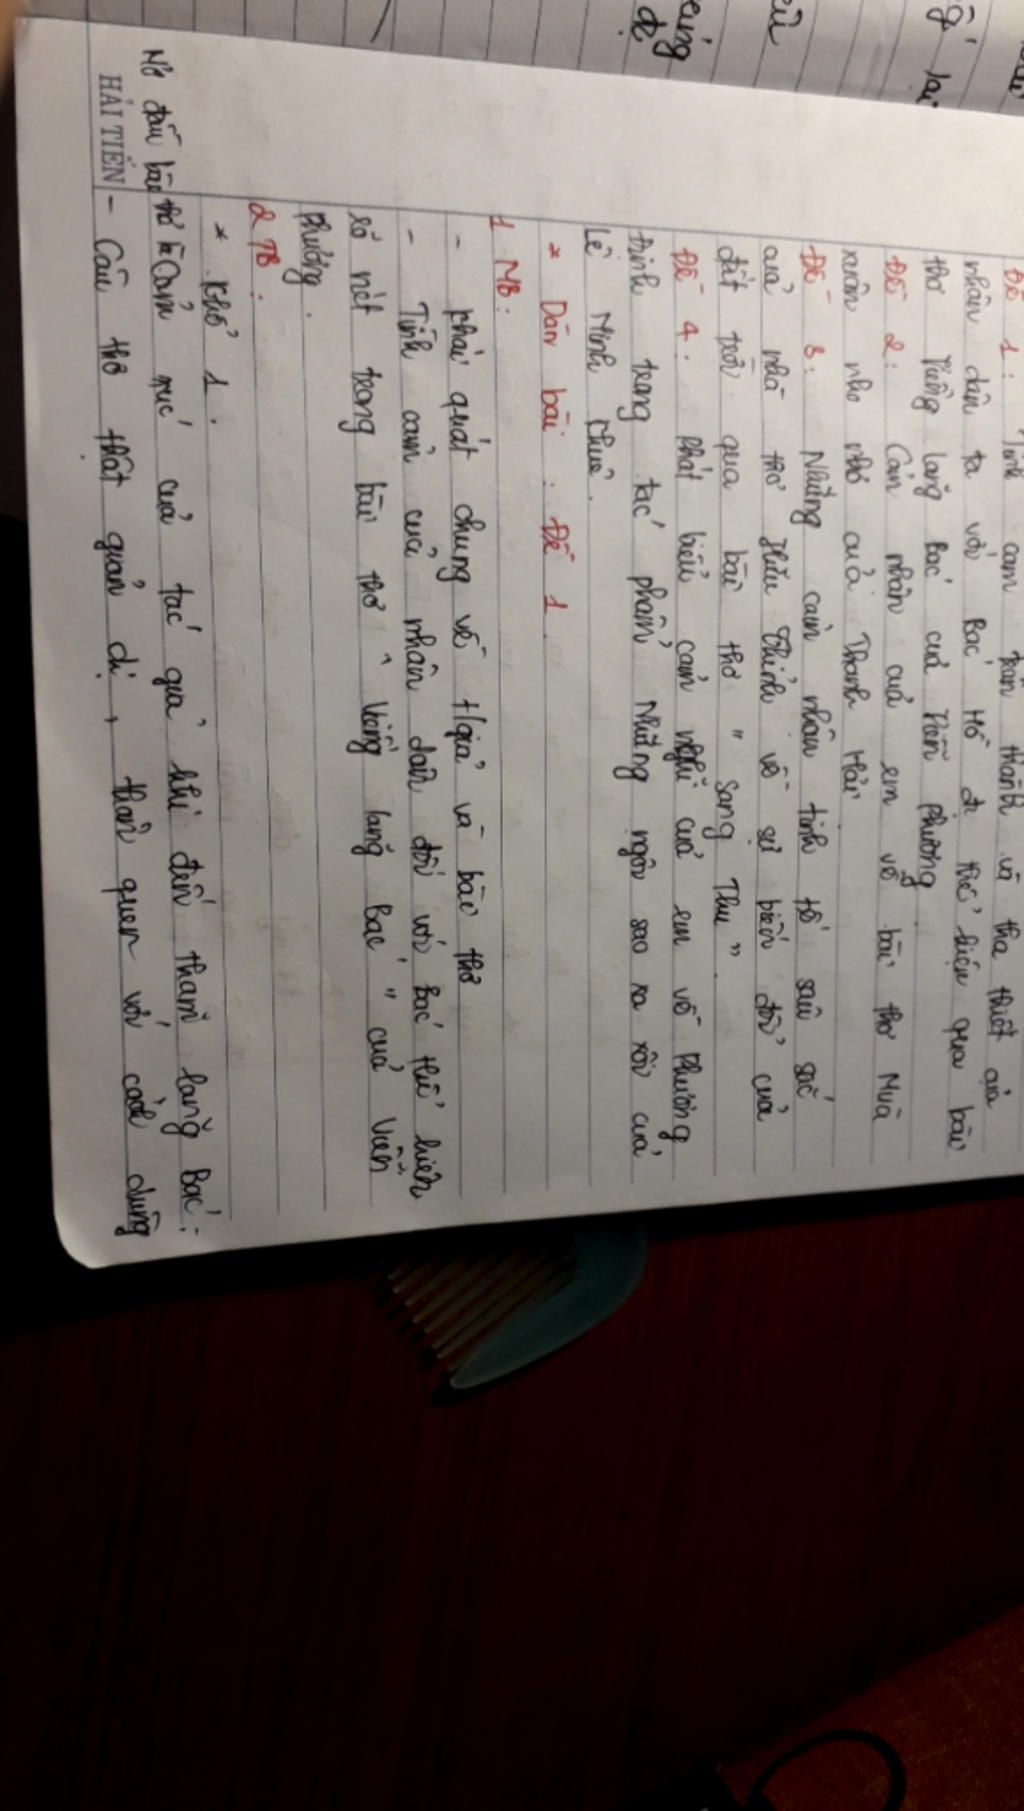 Đề 1: Tình cảm chân thành và tha thiết của
nhân dân ta với Bác Hồ đc thể hiện qua bài
thơ Viếng lăng Bác của Viễn Phương
Đề 2: Cảm nhận của em về bài thơ Mùa
xuân nho nhỏ của Thanh Hải.
Đề 3: Những cảm nhận tinh tế sâu sắc
của nhà thơ Hữu Thỉnh về sự biến đổi của
đất trời qua bài thơ " Sang Thu ".
Đề 4: Phát biểu cảm nghĩ của em về Phương
Định trong tác phẩm Những ngôi sao xa xôi của
Lê Minh Khuê.
* Dàn bài : Đề 1
1 MB:
- Khái quát chung về t/giả và bài thơ
- Tình cảm của nhân dân đối với Bác thể hiện
rõ nét trong bài thơ " Viếng lăng Bác " của Viễn
Phương.
2 TB:
* Khổ 1.
Mở đầu bài thơ là Cảm xúc của tác giả khi đến thăm lăng Bác:
HẢI TIẾN - Câu thơ thật giản dị, thân quen với cách dùng